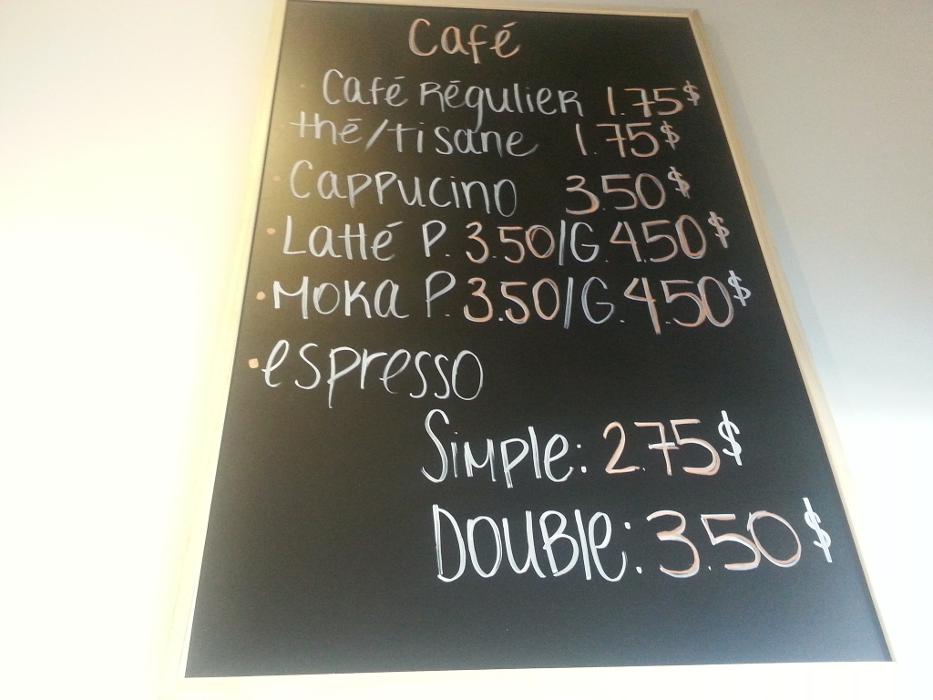 Café
• Café Régulier 1.75$
thé/tisane 1.75$
• Cappucino 3.50$
• Latté P. 3.50/G. 4.50$
• Moka P. 3.50/G. 4.50$
• espresso
Simple: 2.75$
Double: 3.50$